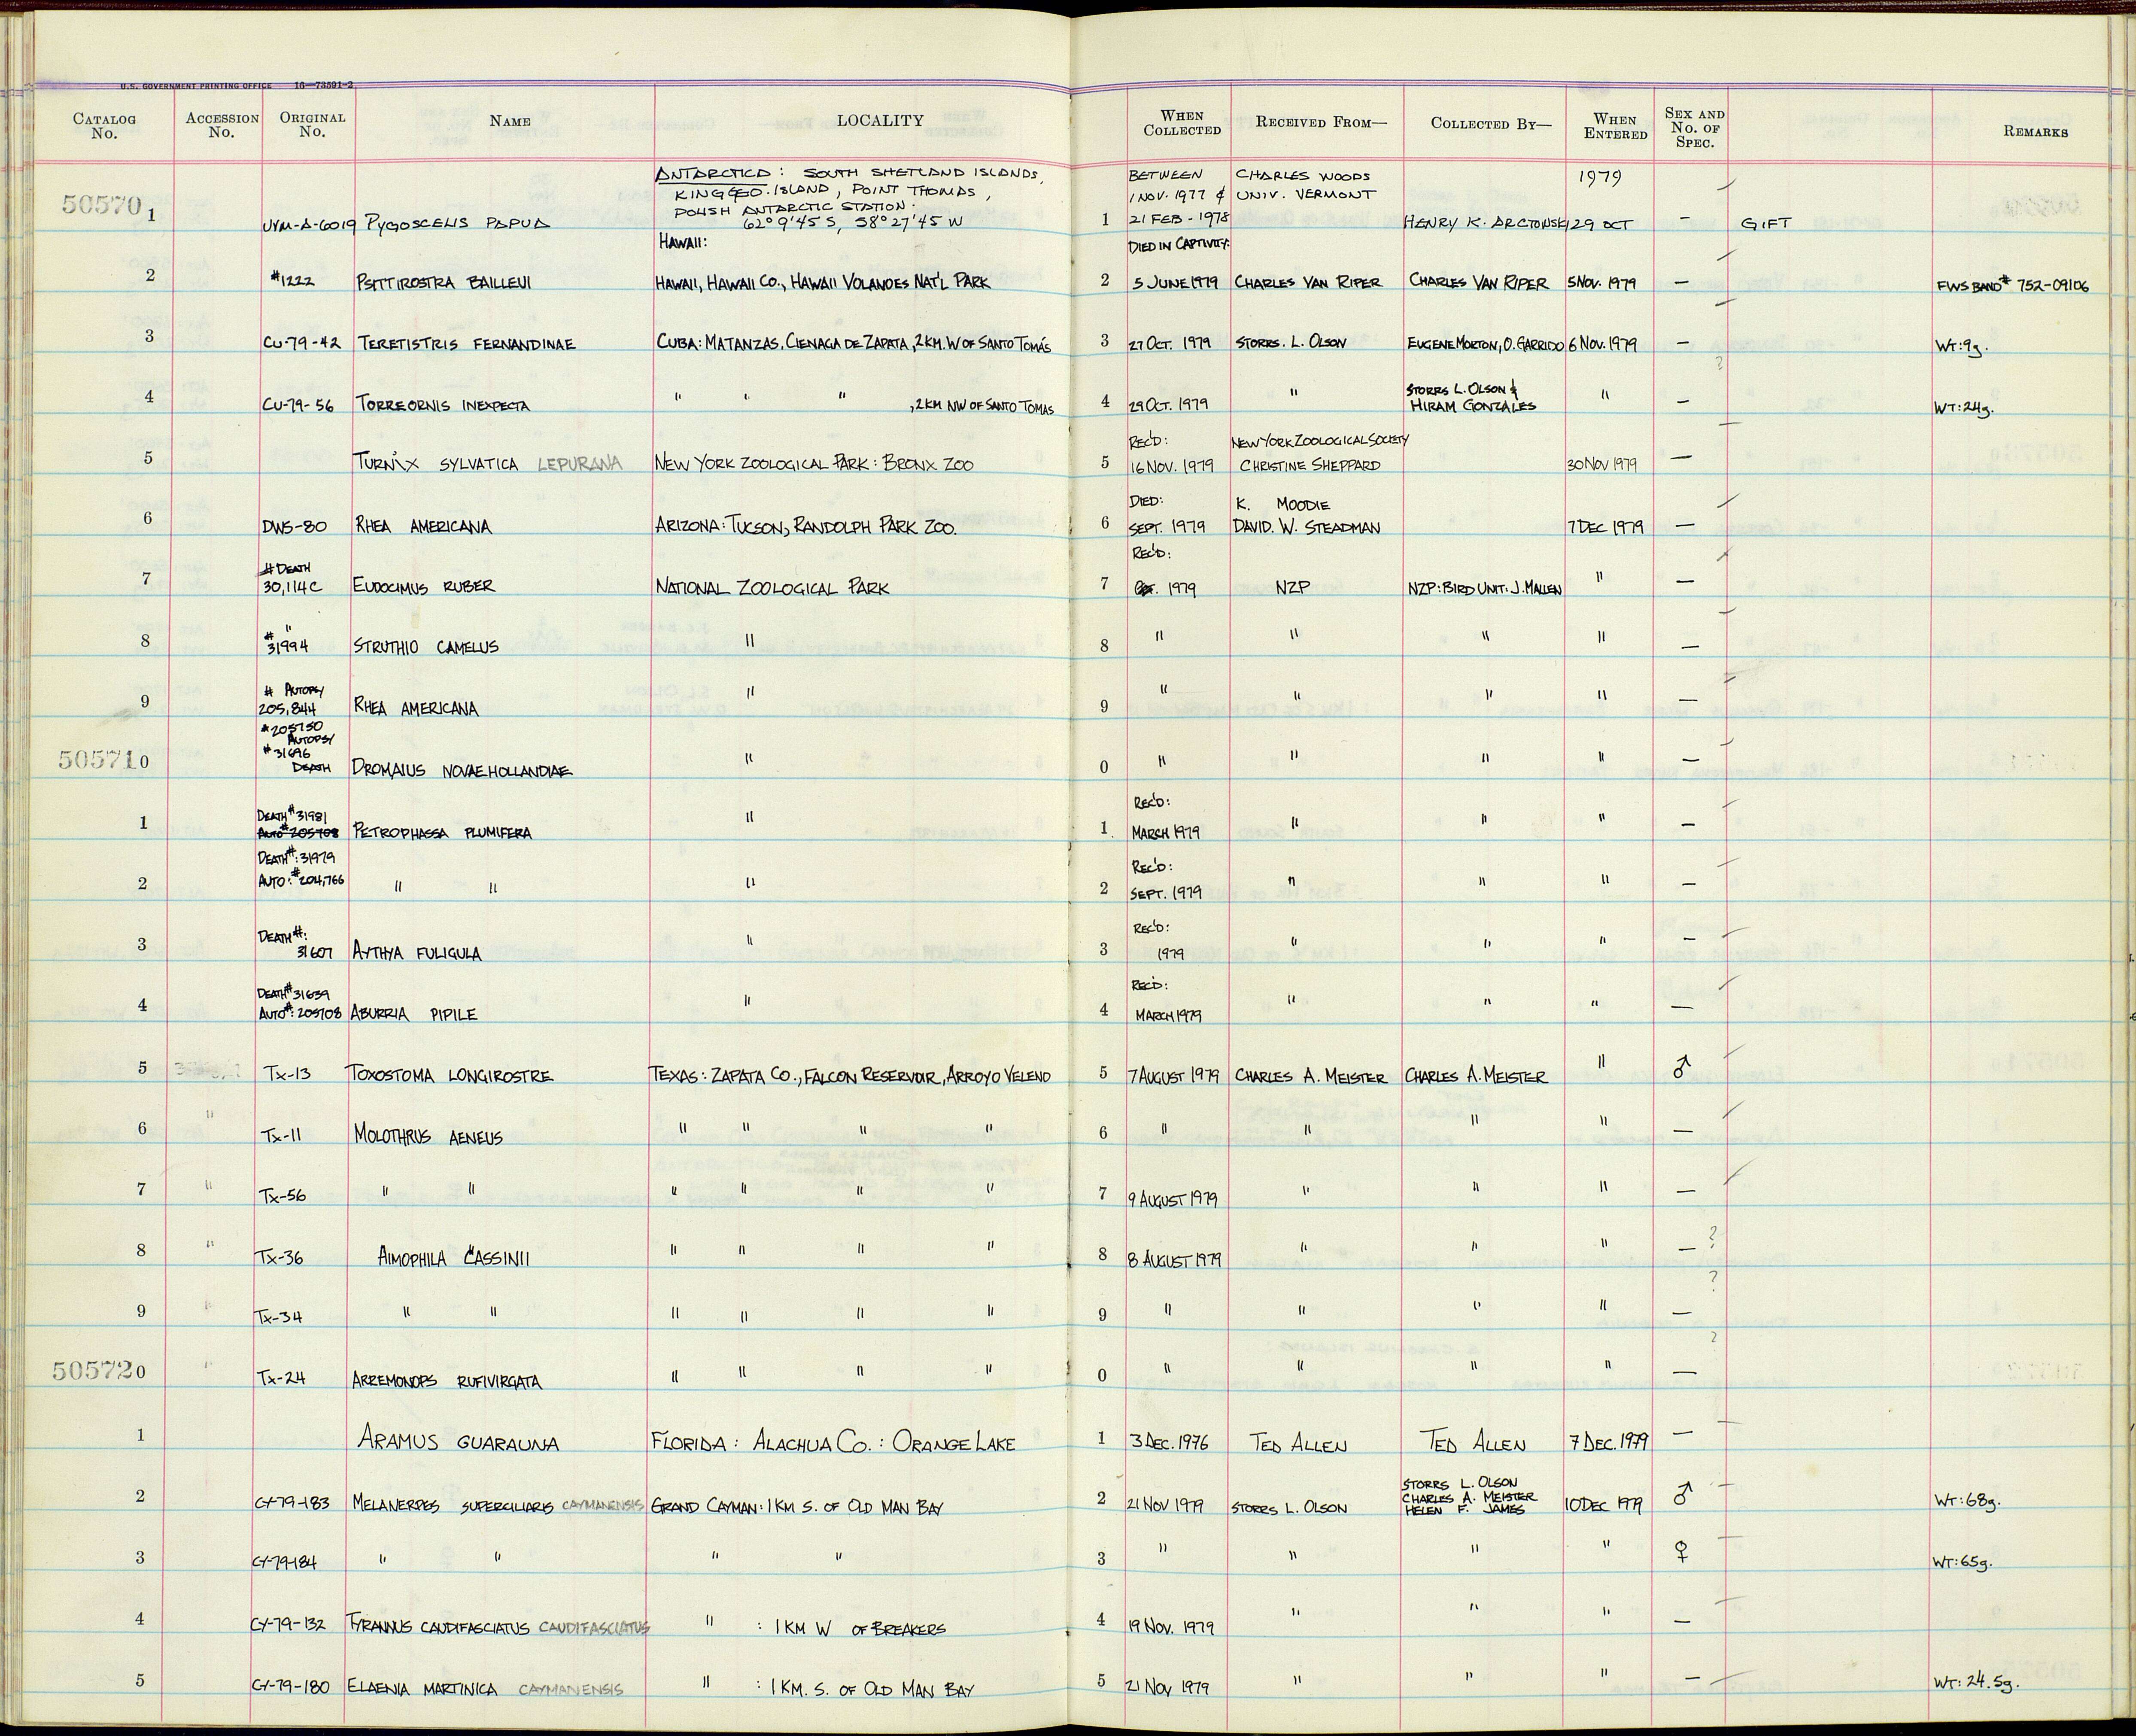 U.S. GOVERNMENT PRINTING OFFICE 16—73591-2
CATALOG No. ACCESSION No. ORIGINAL No. NAME LOCALITY WHEN COLLECTED RECEIVED FROM— COLLECTED BY— WHEN ENTERED SEX AND No. OF SPEC. REMARKS
ANTARCTICA: SOUTH SHETLAND ISLANDS, BETWEEN CHARLES WOODS 1979
ISLAND, POINT THOMAS, 1 NOV. 1977 & UNIV. VERMONT
POLISH ANTARCTIC STATION:
505701 UVM-A-6019 PYGOSCELIS PAPUA 62° 9'45 S, 58° 27'45 W 1 21 FEB - 1978 HENRY K. ARCTOWSKI 29 OCT — GIFT
HAWAII: DIED IN CAPTIVITY:
2 #1222 PSITTIROSTRA BAILLEUI HAWAII, HAWAII CO., HAWAII VOLANOES NAT'L PARK 2 5 JUNE 1979 CHARLES VAN RIPER CHARLES VAN RIPER 5 NOV. 1979 — FWS BAND# 752-09106
3 CU-79-42 TERETISTRIS FERNANDINAE CUBA: MATANZAS, CIENAGA DE ZAPATA, 2 KM. W OF SANTO TOMÁS 3 27 OCT. 1979 STORRS. L. OLSON EUGENE MORTON, O. GARRIDO 6 NOV. 1979 — WT: 9g.
?
STORRS L. OLSON &
4 CU-79-56 TORREORNIS INEXPECTA " " " , 2 KM NW OF SANTO TOMAS 4 29 OCT. 1979 " HIRAM GONZALES " — WT: 24g.
REC'D: NEW YORK ZOOLOGICAL SOCIETY
5 TURNIX SYLVATICA LEPURANA NEW YORK ZOOLOGICAL PARK: BRONX ZOO 5 16 NOV. 1979 CHRISTINE SHEPPARD 30 NOV 1979 —
DIED: K. MOODIE
6 DWS-80 RHEA AMERICANA ARIZONA: TUCSON, RANDOLPH PARK ZOO. 6 SEPT. 1979 DAVID. W. STEADMAN 7 DEC 1979 —
# DEATH REC'D:
7 30,114C EUDOCIMUS RUBER NATIONAL ZOOLOGICAL PARK 7 1979 NZP NZP: BIRD UNIT: J. MALLEN " —
"
8 # 31994 STRUTHIO CAMELUS " 8 " " " " —
# AUTOPSY
9 205,844 RHEA AMERICANA " 9 " " " " —
#205750
AUTOPSY
#31696
505710 DEATH DROMAIUS NOVAEHOLLANDIAE " 0 " " " " —
DEATH #31981 REC'D:
1 AUTO #205708 PETROPHASSA PLUMIFERA " 1 MARCH 1979 " " " —
DEATH#: 31979 REC'D:
2 AUTO: #204,766 " " " 2 SEPT. 1979 " " " —
DEATH #: REC'D:
3 31607 AYTHYA FULIGULA " 3 1979 " " " —
DEATH #31639 REC'D:
4 AUTO#: 205708 ABURRIA PIPILE " 4 MARCH 1979 " " " —
5 TX-13 TOXOSTOMA LONGIROSTRE TEXAS: ZAPATA CO., FALCON RESERVOIR, ARROYO VELENO 5 7 AUGUST 1979 CHARLES A. MEISTER CHARLES A. MEISTER " ♂
6 " TX-11 MOLOTHRUS AENEUS " " " " 6 " " " " —
7 " TX-56 " " " " " " 7 9 AUGUST 1979 " " " —
8 " TX-36 AIMOPHILA CASSINII " " " " 8 8 AUGUST 1979 " " " — ?
9 " TX-34 " " " " " " 9 " " " " — ?
505720 " TX-24 ARREMONOPS RUFIVIRGATA " " " " 0 " " " " — ?
1 ARAMUS GUARAUNA FLORIDA: ALACHUA CO.: ORANGE LAKE 1 3 DEC. 1976 TED ALLEN TED ALLEN 7 DEC. 1979 —
STORRS L. OLSON
CHARLES A. MEISTER
2 CY-79-183 MELANERPES SUPERCILIARIS CAYMANENSIS GRAND CAYMAN: 1 KM S. OF OLD MAN BAY 2 21 NOV 1979 STORRS L. OLSON HELEN F. JAMES 10 DEC 1979 ♂ WT: 68g.
3 CY-79-184 " " " " 3 " " " " ♀ WT: 65g.
4 CY-79-132 TYRANNUS CAUDIFASCIATUS CAUDIFASCIATUS " : 1 KM W OF BREAKERS 4 19 NOV. 1979 " " " —
5 CY-79-180 ELAENIA MARTINICA CAYMANENSIS " : 1 KM. S. OF OLD MAN BAY 5 21 NOV 1979 " " " — WT: 24.5g.